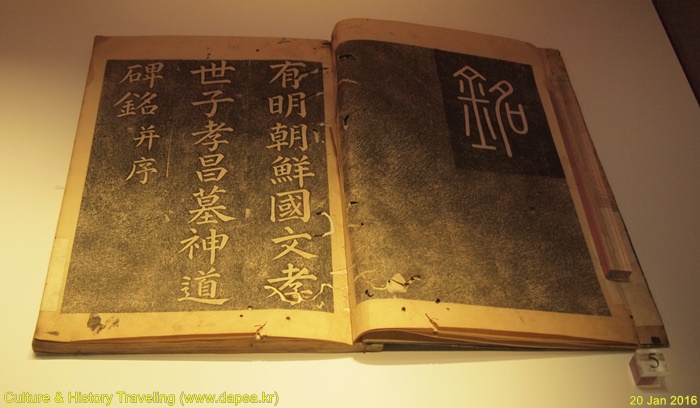 銘
有明朝鮮國文孝
世子孝昌墓神道
碑銘并序
5
Culture & History Traveling (www.dapsa.kr)
20 Jan 2016